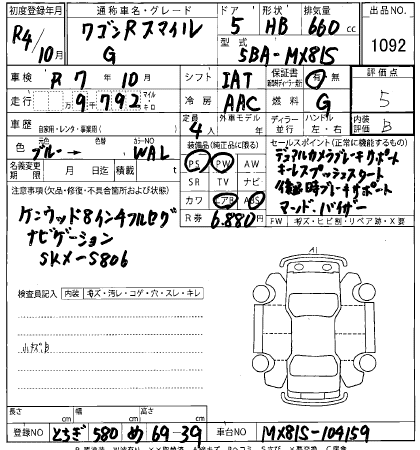 初度登録年月 通称車名・グレード ドア 形状 排気量 出品NO
R4/10月 ワゴンR スマイル G 5 HB 660cc 1092
型式 5BA-MX81S
車検 R7年10月 シフト IAT 保証書 有 無 評価点
走行 9千792 マイル キロ 冷房 AAC 燃料 G 5
車歴 自家用・レンタ・事業用( ) 定員 4人 外車モデル ディーラー 並行 ハンドル 左・右 内装評価 B
色 元色 ブルー→ 色替 カラーNO WAL
装備品(純正品に限る) セールスポイント(正常に機能するもの)
PS PW AW
SR TV ナビ
カワ エアB ABS
デュアルカメラブレーキサポート
キーレスプッシュスタート
後退時ブレーキサポート
マーンドバイザー
名義変更期限 月 日迄 積載
R券 6.880円
FW キズ・ヒビ割・リペア跡・X要
注意事項(欠品・修復・不具合箇所および状態)
ケンウッド8インチフルセグ
ナビゲーション
SKX-S806
検査員記入 内装 キズ・汚レ・コゲ・穴・スレ・キレ
小キズB
A1
長さ cm 幅 cm 高さ cm
登録NO とちぎ 580 め 69-39 車台NO MX81S-104159